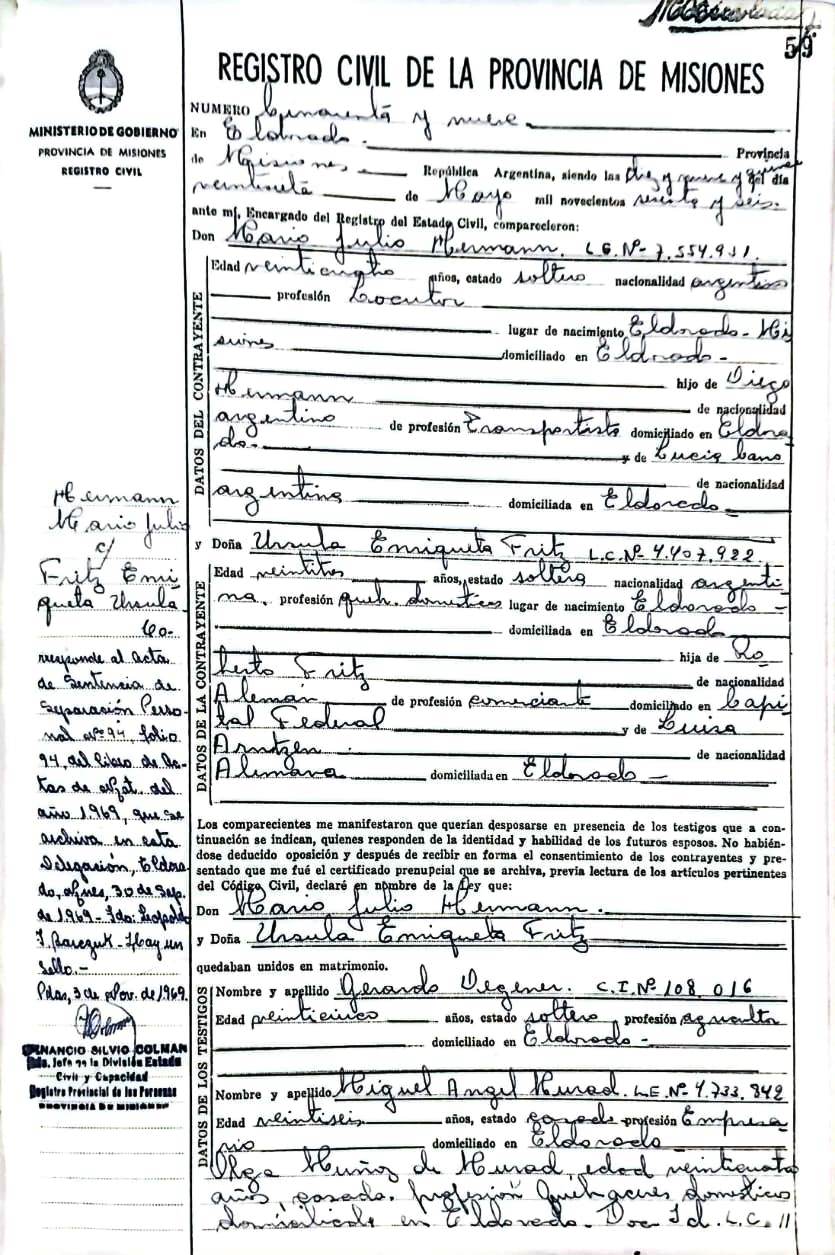 59
REGISTRO CIVIL DE LA PROVINCIA DE MISIONES
MINISTERIO DE GOBIERNO
PROVINCIA DE MISIONES
REGISTRO CIVIL
NUMERO Cincuenta y nueve
En Eldorado. Provincia
de Misiones República Argentina, siendo las diez y nueve y quince del día
veintisiete de Mayo mil novecientos sesenta y seis.
ante mí, Encargado del Registro del Estado Civil, comparecieron:
Don Mario Julio Hermann. L.E. Nº 7.554.931.
DATOS DEL CONTRAYENTE
Edad veinticuatro años, estado soltero nacionalidad argentino
profesión Locutor
lugar de nacimiento Eldorado - Mi
siones domiciliado en Eldorado -
hijo de Diego
Hermann de nacionalidad
argentino de profesión Transportista domiciliado en Eldora
do. y de Lucia Cano
de nacionalidad
argentina domiciliada en Eldorado
y Doña Ursula Enriqueta Fritz L.C. Nº 4.407.922
DATOS DE LA CONTRAYENTE
Edad veintitres años, estado soltera nacionalidad argenti
na. profesión queh. domesticos lugar de nacimiento Eldorado -
domiciliada en Eldorado
hija de Ro
berto Fritz de nacionalidad
Alemán de profesión comerciante domiciliado en Capi
tal Federal y de Luisa
Arntzen. de nacionalidad
Alemana domiciliada en Eldorado -
Los comparecientes me manifestaron que querían desposarse en presencia de los testigos que a con-
tinuación se indican, quienes responden de la identidad y habilidad de los futuros esposos. No habién-
dose deducido oposición y después de recibir en forma el consentimiento de los contrayentes y pre-
sentado que me fué el certificado prenupcial que se archiva, previa lectura de los artículos pertinentes
del Código Civil, declaré en nombre de la Ley que:
Don Mario Julio Hermann.
y Doña Ursula Enriqueta Fritz
quedaban unidos en matrimonio.
DATOS DE LOS TESTIGOS
Nombre y apellido Gerardo Degener. C.I. Nº 108.016
Edad veinticinco años, estado soltero profesión agriculto
domiciliado en Eldorado -
Nombre y apellido Miguel Angel Murad. L.E. Nº 4.733.842
Edad veintiseis años, estado casado profesión Empresa
rio domiciliado en Eldorado
Olga Muñoz de Murad, edad veinticuatro
años, casada. profesión Quehaceres domesticos
domiciliada en Eldorado - Doc. Id. L.C. //
Hermann
Mario Julio
c/
Fritz Enri
queta Ursula
Co-
rresponde al acta
de Sentencia de
Separación Perso-
nal nº 94, folio
94, del Libro de
año 1969, que se
archiva en esta
Delegación, Eldora-
do, Mnes, 30 de Sep.
de 1969 - Fdo: Leopoldo
J. - Hay un
Sello.-
Pdas, 3 de Nov. de 1969.
VENANCIO SILVIO COLMAN
Jefe de la División Estado
Civil y Capacidad
Registro Provincial de las Personas
PROVINCIA DE MISIONES